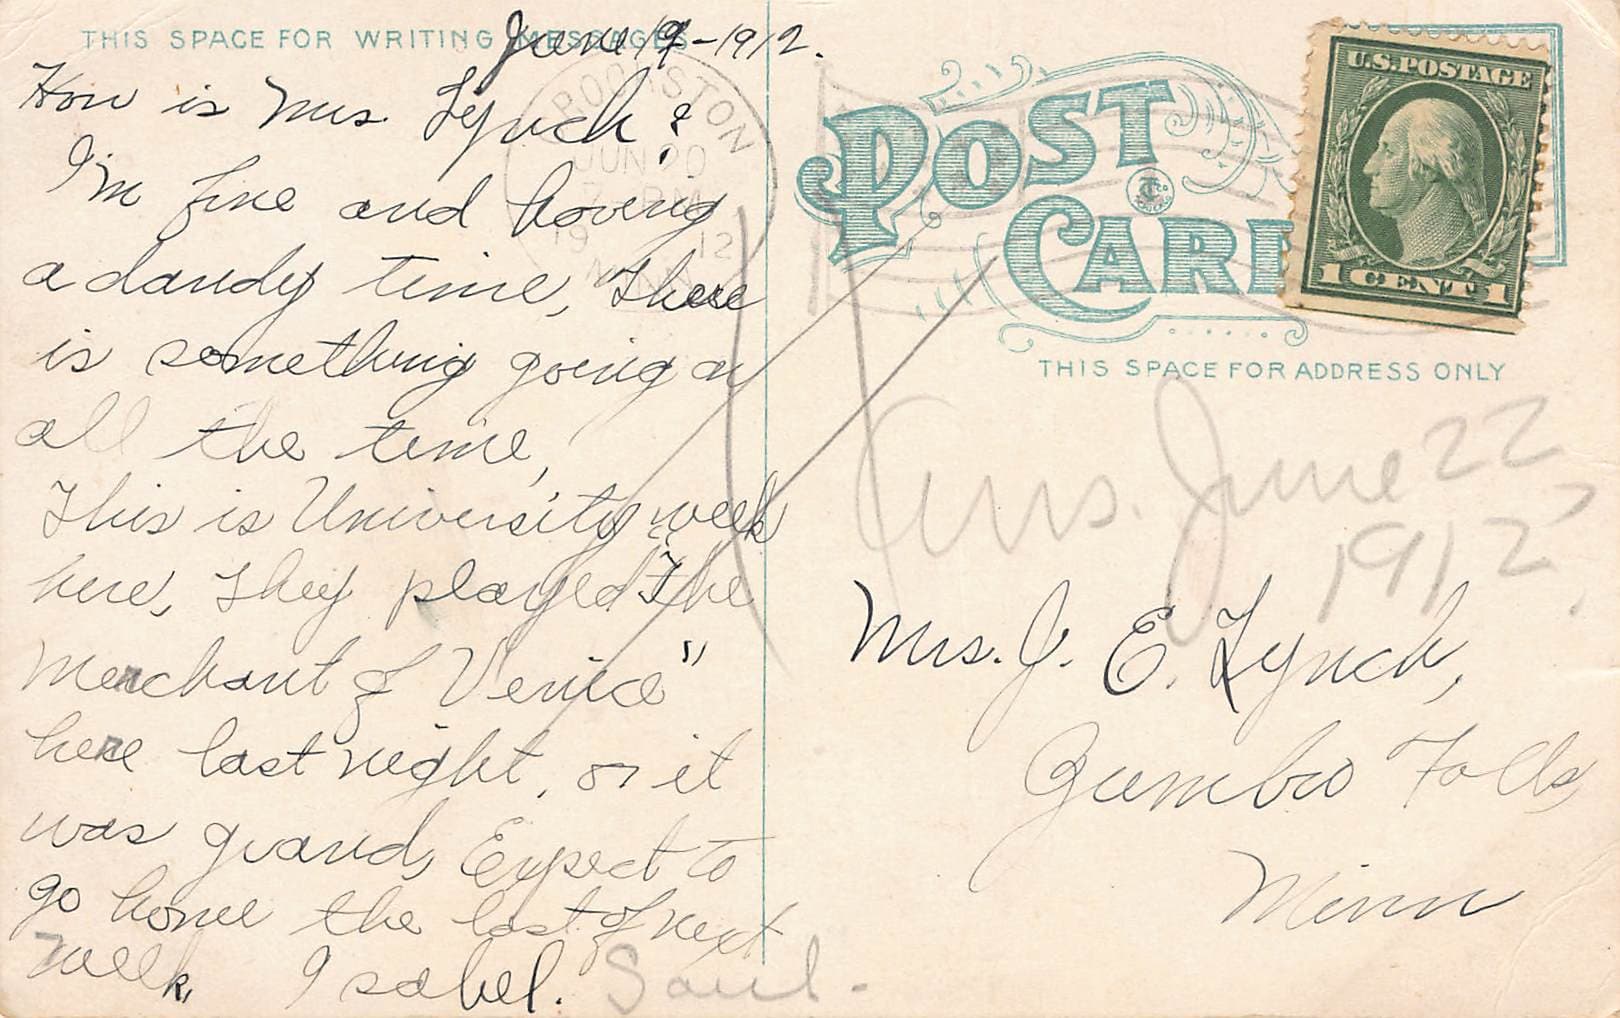 THIS SPACE FOR WRITING MESSAGES
June 19-1912.
How is Mrs. Lynch?
I'm fine and having
a dandy time, There
is something going on
all the time,
This is University week
here, They played "The
Merchant of Venice"
here last night, it
was grand, Expect to
go home the last of next
week, Isabel. Saul.
CROOKSTON
JUN 20
7 PM
1912
MINN
POST CARD
THIS SPACE FOR ADDRESS ONLY
U.S. POSTAGE
1 CENT 1
Ans. June 22
1912
Mrs. J. E. Lynch,
Gumbo Falls
Minn